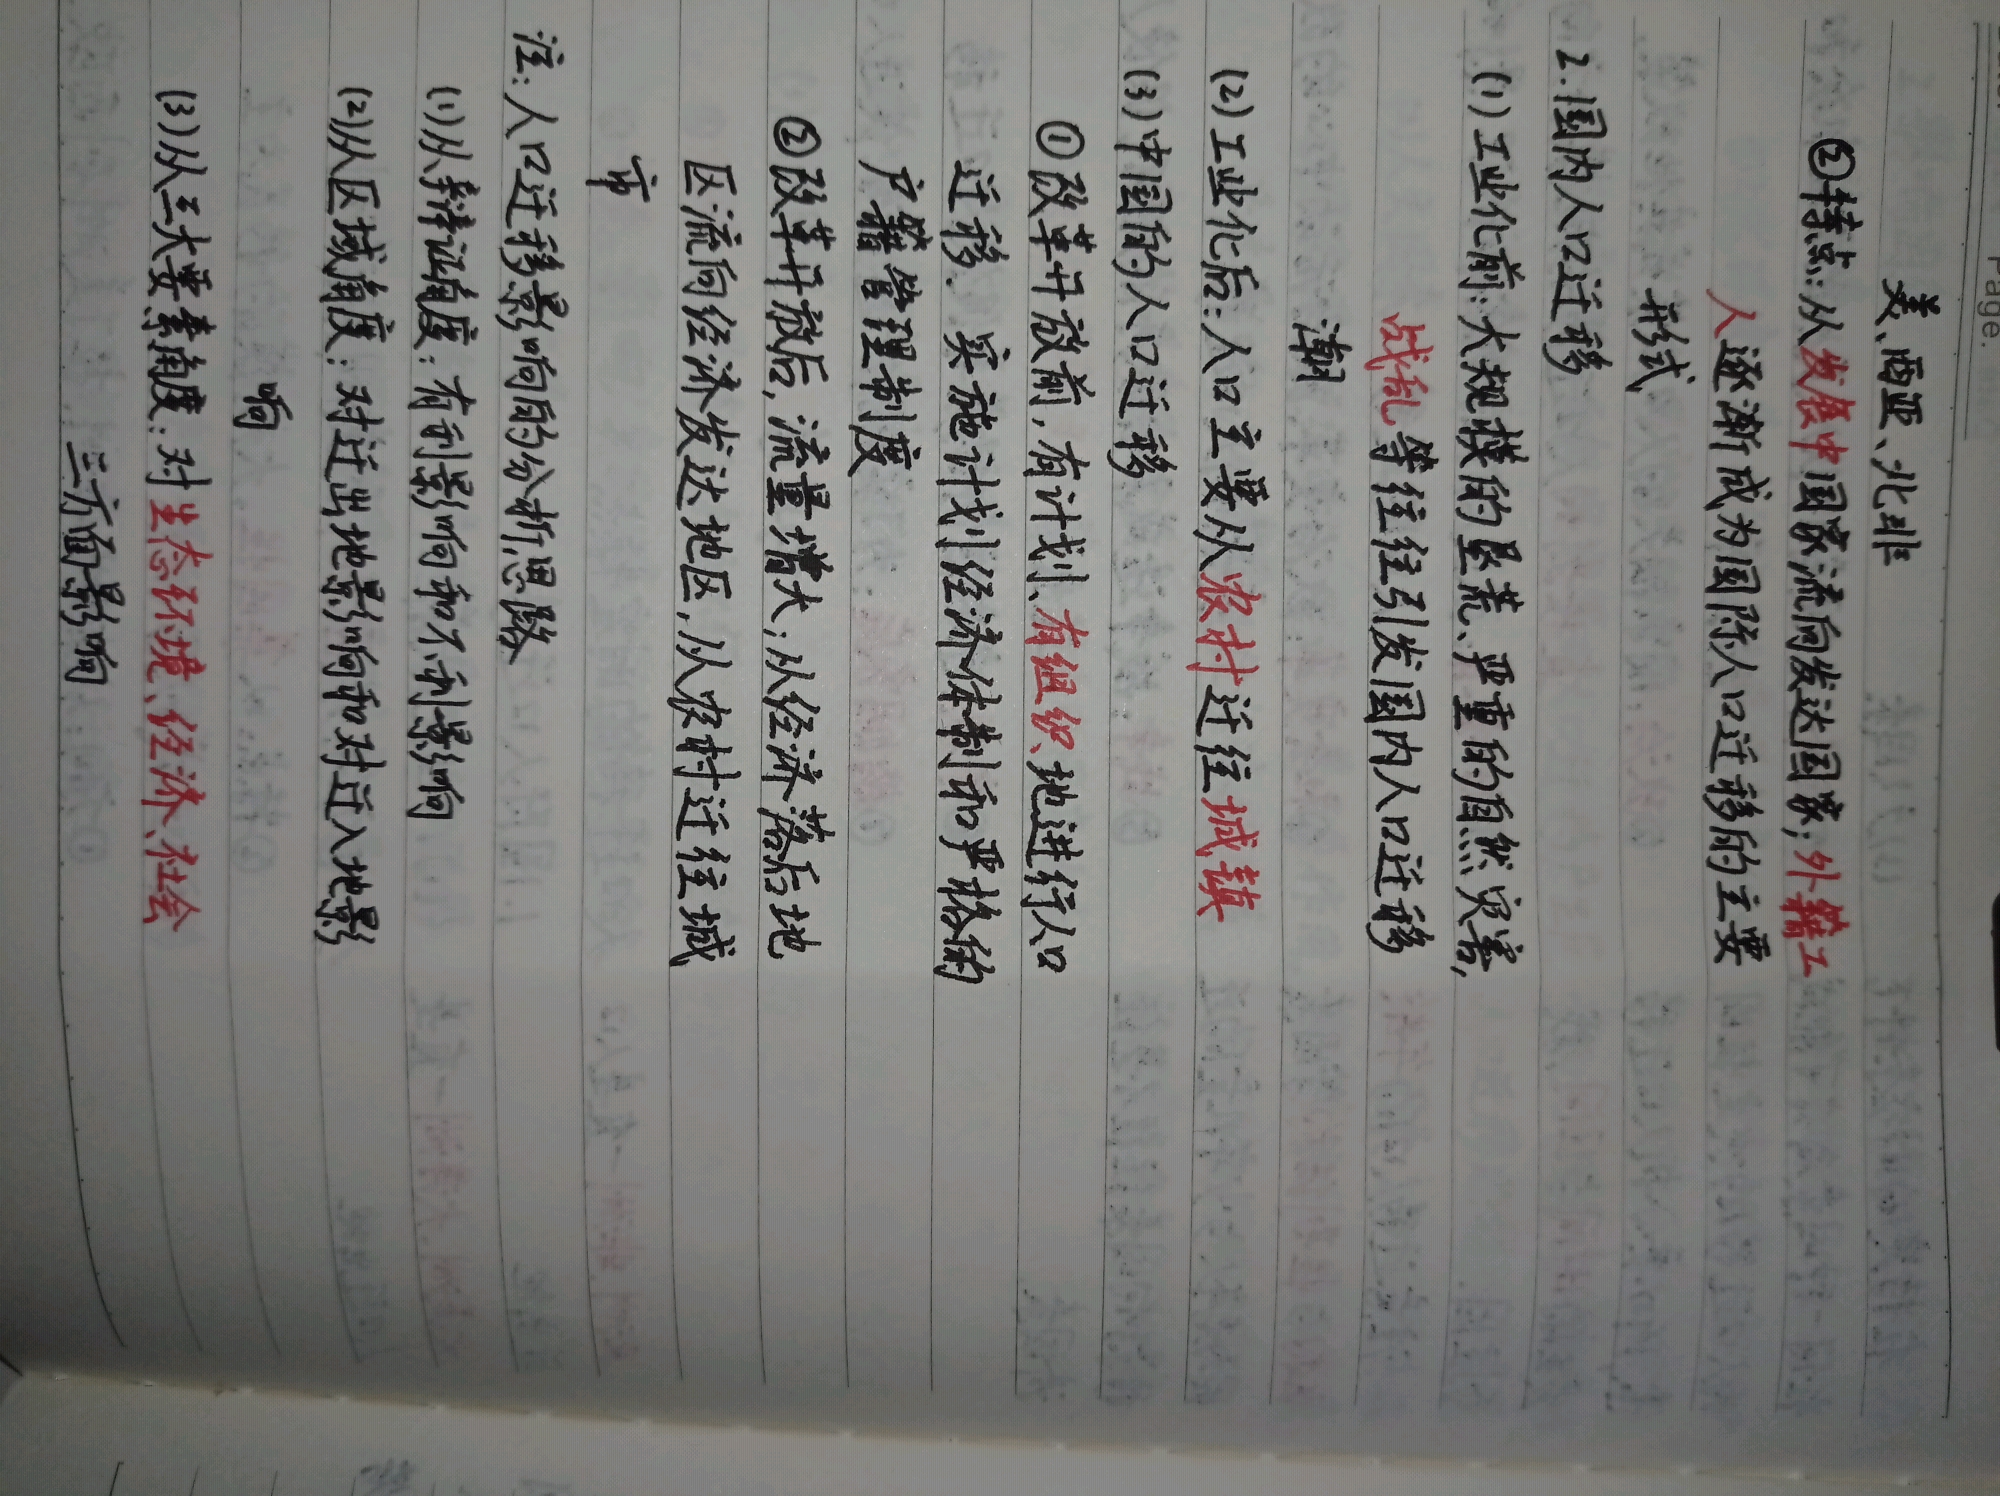 Page.
美、西亚、北非
②特点：从发展中国家流向发达国家；外籍工
人逐渐成为国际人口迁移的主要
形式
2.国内人口迁移
(1)工业化前：大规模的垦荒、严重的自然灾害，
战乱等往往引发国内人口迁移
潮
(2)工业化后：人口主要从农村迁往城镇
(3)中国的人口迁移
①改革开放前，有计划、有组织地进行人口
迁移．实施计划经济体制和严格的
户籍管理制度
②改革开放后，流量增大；从经济落后地
区流向经济发达地区，从农村迁往城
市
注：人口迁移影响的分析思路
(1)从辩证角度：有利影响和不利影响
(2)从区域角度：对迁出地影响和对迁入地影
响
(3)从三大要素角度：对生态环境、经济、社会
三方面影响